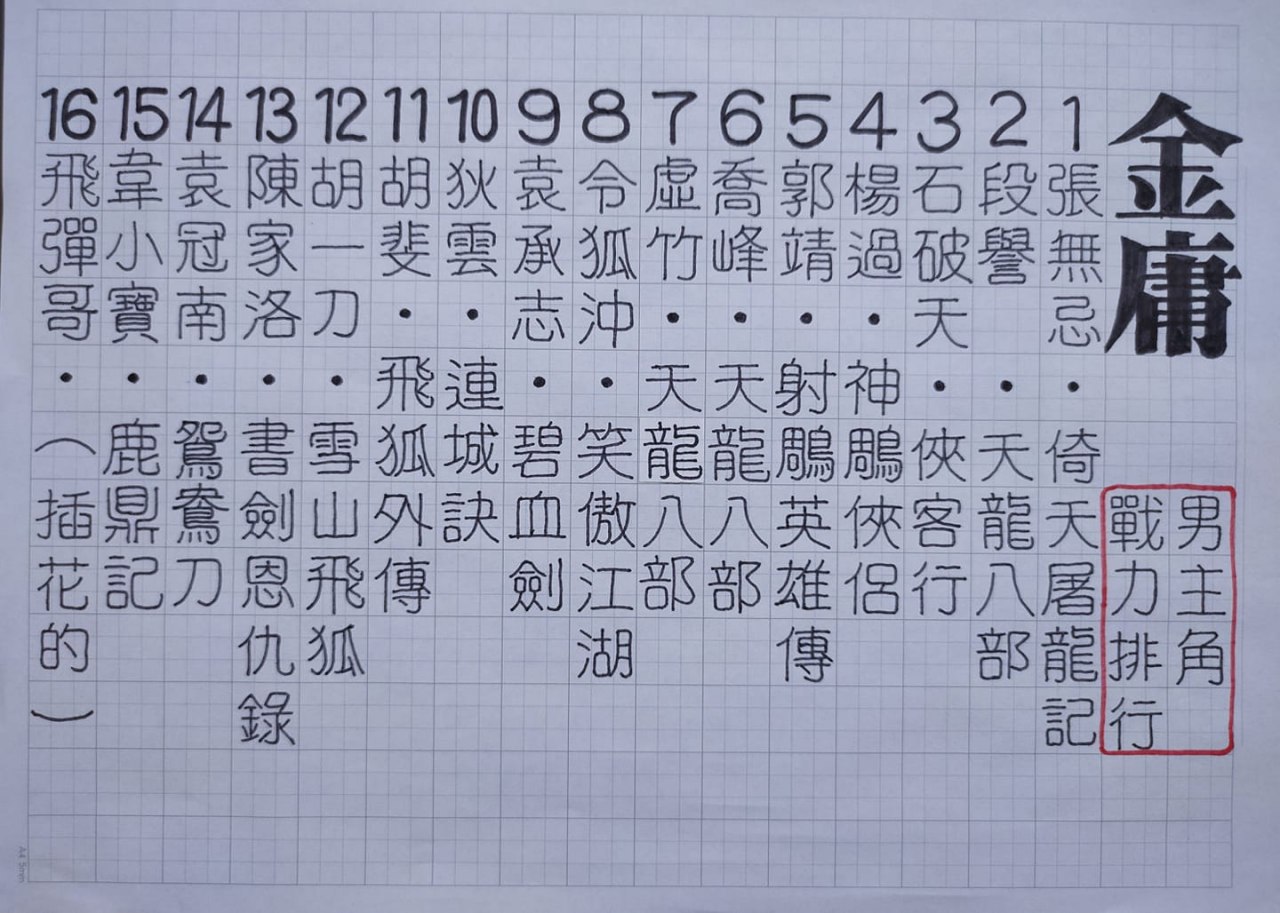 金庸
男主角
戰力排行
1張無忌・倚天屠龍記
2段譽・天龍八部
3石破天・俠客行
4楊過・神鵰俠侶
5郭靖・射鵰英雄傳
6喬峰・天龍八部
7虛竹・天龍八部
8令狐沖・笑傲江湖
9袁承志・碧血劍
10狄雲・連城訣
11胡斐・飛狐外傳
12胡一刀・雪山飛狐
13陳家洛・書劍恩仇錄
14袁冠南・鴛鴦刀
15韋小寶・鹿鼎記
16飛彈哥・（插花的）
A4 5mm